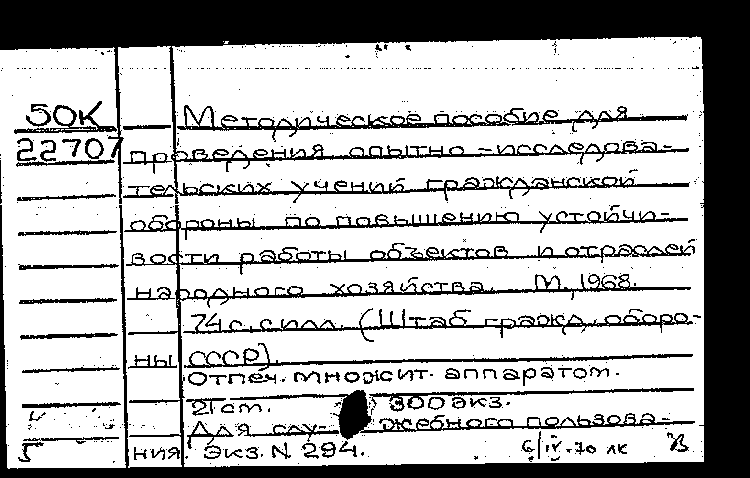 50К Методическое пособие для
22707 проведения опытно-исследова-
тельских учений гражданской
обороны по повышению устойчи-
вости работы объектов и отраслей
народного хозяйства. М., 1968.
74 с. с илл. (Штаб гражд. оборо-
ны СССР).
Отпеч. множит. аппаратом.
21 cm. 300 экз.
Для слу- жебного пользова-
ния. Экз. N 294. 6/IV-70 лк